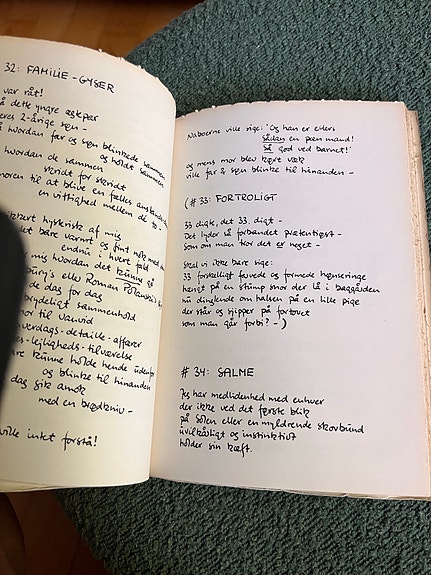 32: FAMILIE-GYSER
var råt!
dette yngre ægtepar
eres 2-årige søn -
hvordan far og søn blinkede sammen
og holdt sammen
hvordan de sammen
skridt for skridt
moren til at blive en fælles
en vittighed mellem de to
hysterisk af mig
det bare varmt og
endnu i hvert fald
mig hvordan det kunne gå
eller Roman Polanski's
de dag for dag
sammenhold
mor til vanvid
verdags-detaille-affærer
s-lejligheds-tilværelse
are kunne holde hende udenfor
og blinke til hinanden
dag gik amok
med en brødkniv -
ville intet forstå!
Naboerne ville sige: "Og han er ellers
sådan en pæn mand!
Så god ved barnet!"
og mens mor blev kørt væk
ville far & søn blinke til hinanden -
(# 33: FORTROLIGT
33 digte, det 33. digt -
Det lyder så forbandet prætentiøst -
som om man tror det er noget -
Skal vi ikke bare sige:
33 forskelligt farvede og formede hønseringe
hængt på en stump snor der lå i baggården
nu dinglende om halsen på en lille pige
der står og sjipper på fortovet
som man går forbi? - )
# 34: SALME
Jeg har medlidenhed med enhver
der ikke ved det første blik
på solen eller en myldrende skovbund
uvilkårligt og instinktivt
holder sin kæft.